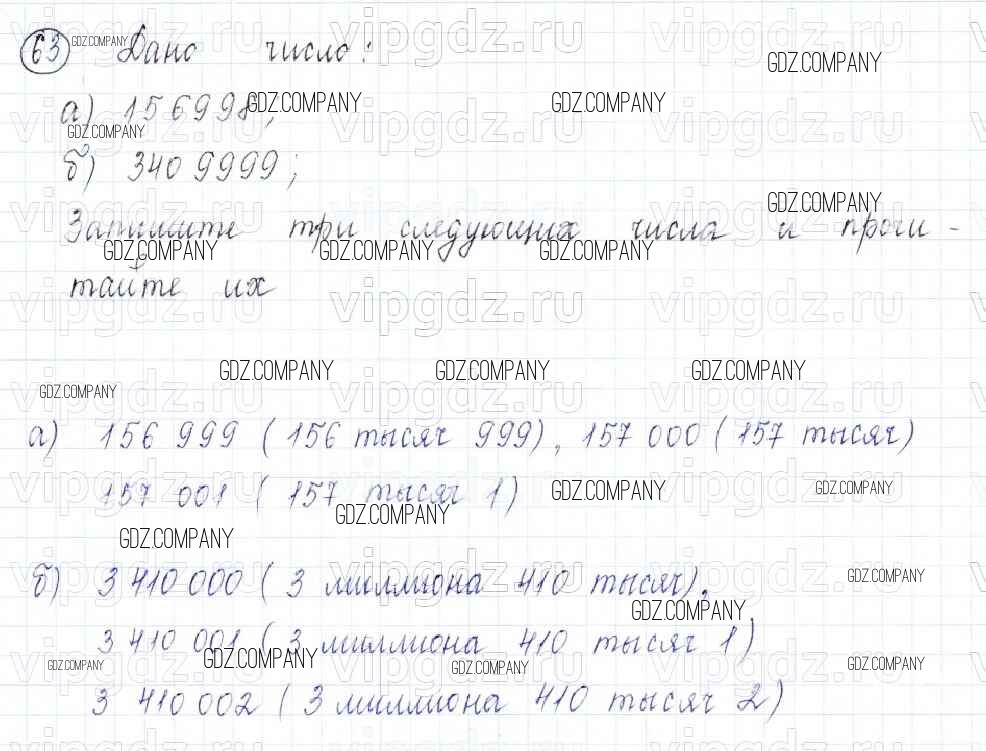 63 Дано число:
а) 156998;
б) 3409999;
Запишите три следующих числа и прочи-
тайте их
а) 156 999 (156 тысяч 999), 157 000 (157 тысяч)
157 001 (157 тысяч 1)
б) 3 410 000 (3 миллиона 410 тысяч),
3 410 001 (3 миллиона 410 тысяч 1)
3 410 002 (3 миллиона 410 тысяч 2)
GDZ.COMPANY
vipgdz.ru